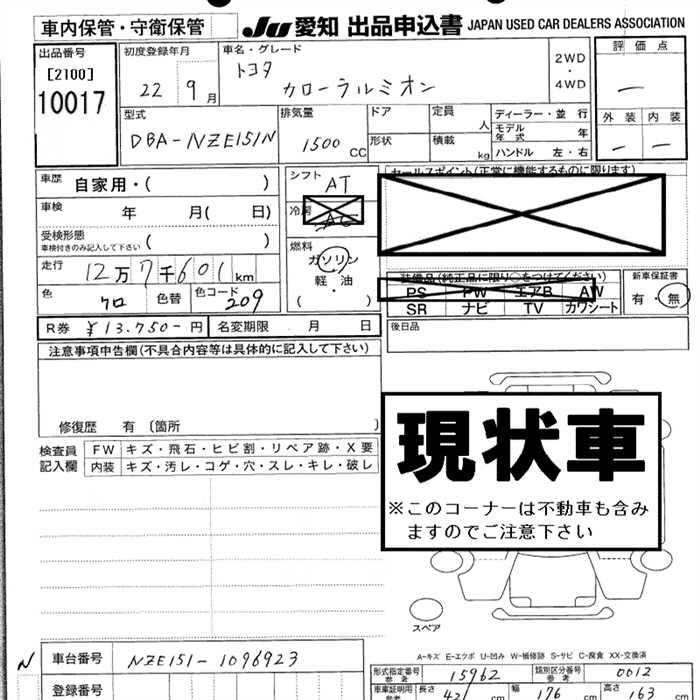 車内保管・守衛保管 JU 愛知 出品申込書 JAPAN USED CAR DEALERS ASSOCIATION
出品番号
[2100]
10017
初度登録年月
22 9月
車名・グレード
トヨタ
カローラルミオン
2WD
・
4WD
評価点
―
外装 内装
― ―
型式
DBA-NZE151N
排気量
1500 CC
ドア
形状
定員 人
積載 kg
ディーラー・並行
モデル年式 年
ハンドル 左・右
車歴 自家用・( )
車検 年 月( 日)
受検形態
車検付きのみ記入して下さい ( )
走行 12万7千601km
色 クロ 色替 色コード 209
R券 ¥13,750-円 名変期限 月 日
シフト
AT
冷房
AC
燃料
ガソリン
軽・油
( )
セールスポイント(正常に機能するものに限ります)
装備品(純正品に限り○をつけてください)
PS PW エアB AW
SR ナビ TV カワシート
新車保証書
有・無
後日品
注意事項申告欄(不具合内容等は具体的に記入して下さい)
修復歴 有 〔箇所 〕
検査員記入欄
FW キズ・飛石・ヒビ割・リペア跡・X要
内装 キズ・汚レ・コゲ・穴・スレ・キレ・破レ
現状車
※このコーナーは不動車も含み
ますのでご注意下さい
スペア
A-キズ E-エクボ U-凹み W-補修跡 S-サビ C-腐食 XX-交換済
N 車台番号 NZE151-1096923
登録番号
形式指定番号
参考 15962
類別区分番号
参考 0012
車庫証明用
参考 長さ 421 幅 176 高さ 163